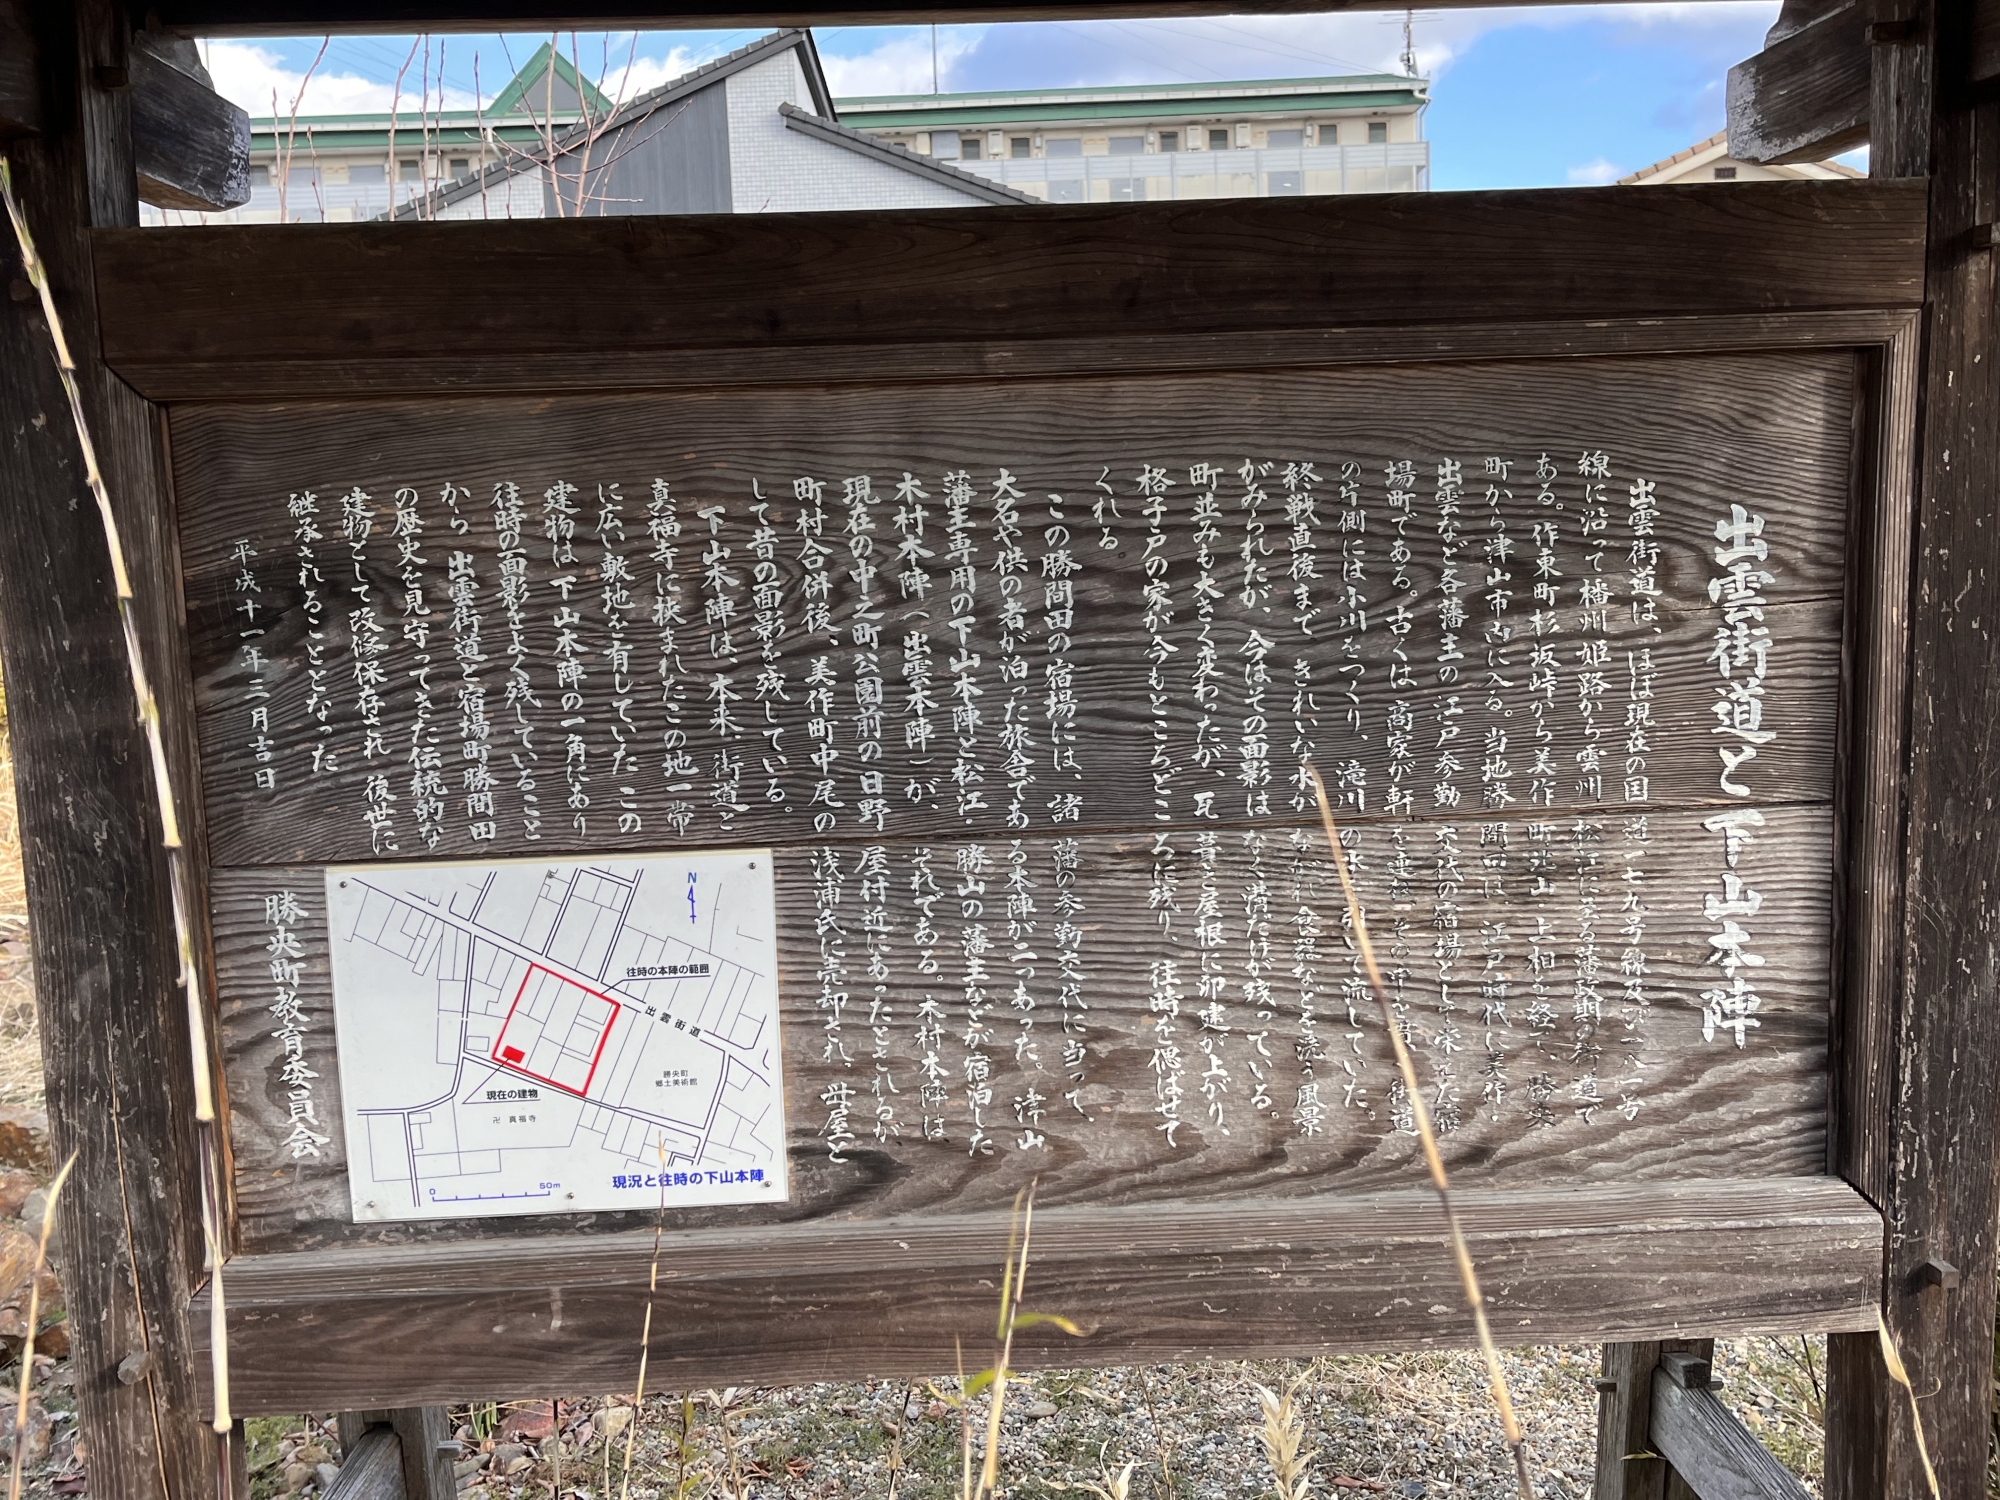 出雲街道と下山本陣
出雲街道は、ほぼ現在の国道一七九号線及び一八一号
線に沿って播州姫路から雲州松江に至る藩政期の街道で
ある。作東町杉坂峠から美作町楢山・上相を経て、勝央
町から津山市内に入る。当地勝間田は、江戸時代に美作・
出雲など各藩主の江戸参勤交代の宿場として栄えた宿
場町である。古くは商家が軒を連ね、その中を
の片側には小川をつくり、滝川の水を引いて流していた。
終戦直後まできれいな水がながれ食器などを洗う風景
がみられたが、今はその面影はなく溝だけが残っている。
町並みも大きく変わったが、瓦葺と屋根に卯建が上がり、
格子戸の家が今もところどころに残り、往時を偲ばせて
くれる
この勝間田の宿場には、諸藩の参勤交代に当って、
大名や供の者が泊った旅舎である本陣が二つあった。津山
藩主専用の下山本陣と松江・勝山の藩主などが宿泊した
木村本陣（出雲本陣）が、それである。木村本陣は、
現在の中之町公園前の日野屋付近にあったとされるが
町村合併後、美作町中尾の浅浦氏に売却され、母屋と
して昔の面影を残している。
下山本陣は、本来、街道と
真福寺に挟まれたこの地一帯
に広い敷地を有していた この
建物は下山本陣の一角にあり
往時の面影をよく残していること
から 出雲街道と宿場町勝間田
の歴史を見守ってきた伝統的な
建物として改修保存され 後世に
継承されることとなった
平成十一年三月吉日
勝央町教育委員会
N
往時の本陣の範囲
出雲街道
勝央町
郷土美術館
現在の建物
卍 真福寺
0 50m
現況と往時の下山本陣